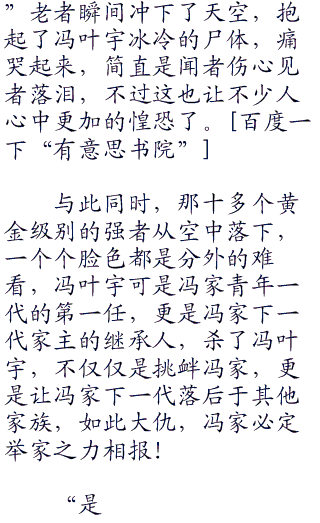 ”老者瞬间冲下了天空，抱
起了冯叶宇冰冷的尸体，痛
哭起来，简直是闻者伤心见
者落泪，不过这也让不少人
心中更加的惶恐了。[百度一
下“有意思书院”]
与此同时，那十多个黄
金级别的强者从空中落下，
一个个脸色都是分外的难
看，冯叶宇可是冯家青年一
代的第一任，更是冯家下一
代家主的继承人，杀了冯叶
宇，不仅仅是挑衅冯家，更
是让冯家下一代落后于其他
家族，如此大仇，冯家必定
举家之力相报！
“是